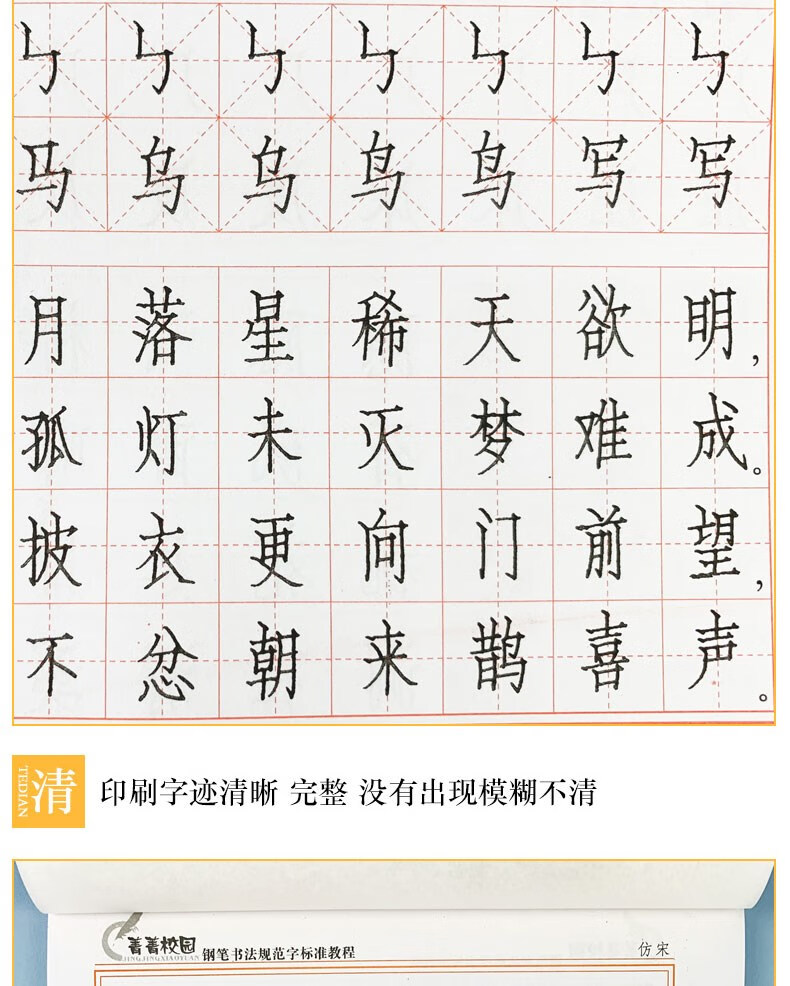 ㇉ ㇉ ㇉ ㇉ ㇉ ㇉ ㇉
马 乌 乌 鸟 鸟 写 写
月落星稀天欲明，
孤灯未灭梦难成。
披衣更向门前望，
不忿朝来鹊喜声。
TEDIAN
清
印刷字迹清晰 完整 没有出现模糊不清
菁菁校园
JINGJINGXIAOYUAN
钢笔书法规范字标准教程
仿宋